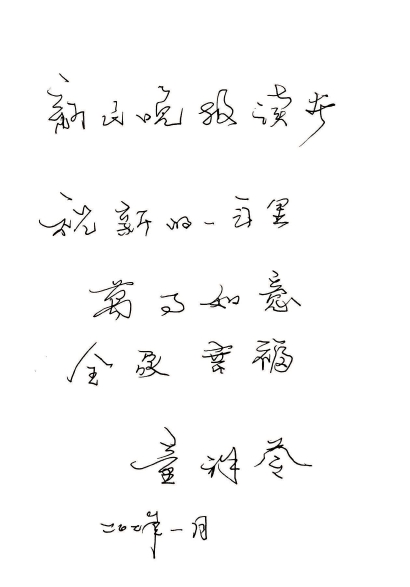 新民晚报读者
祝新的一年里
萬事如意
全家幸福
童祥苓
年一月